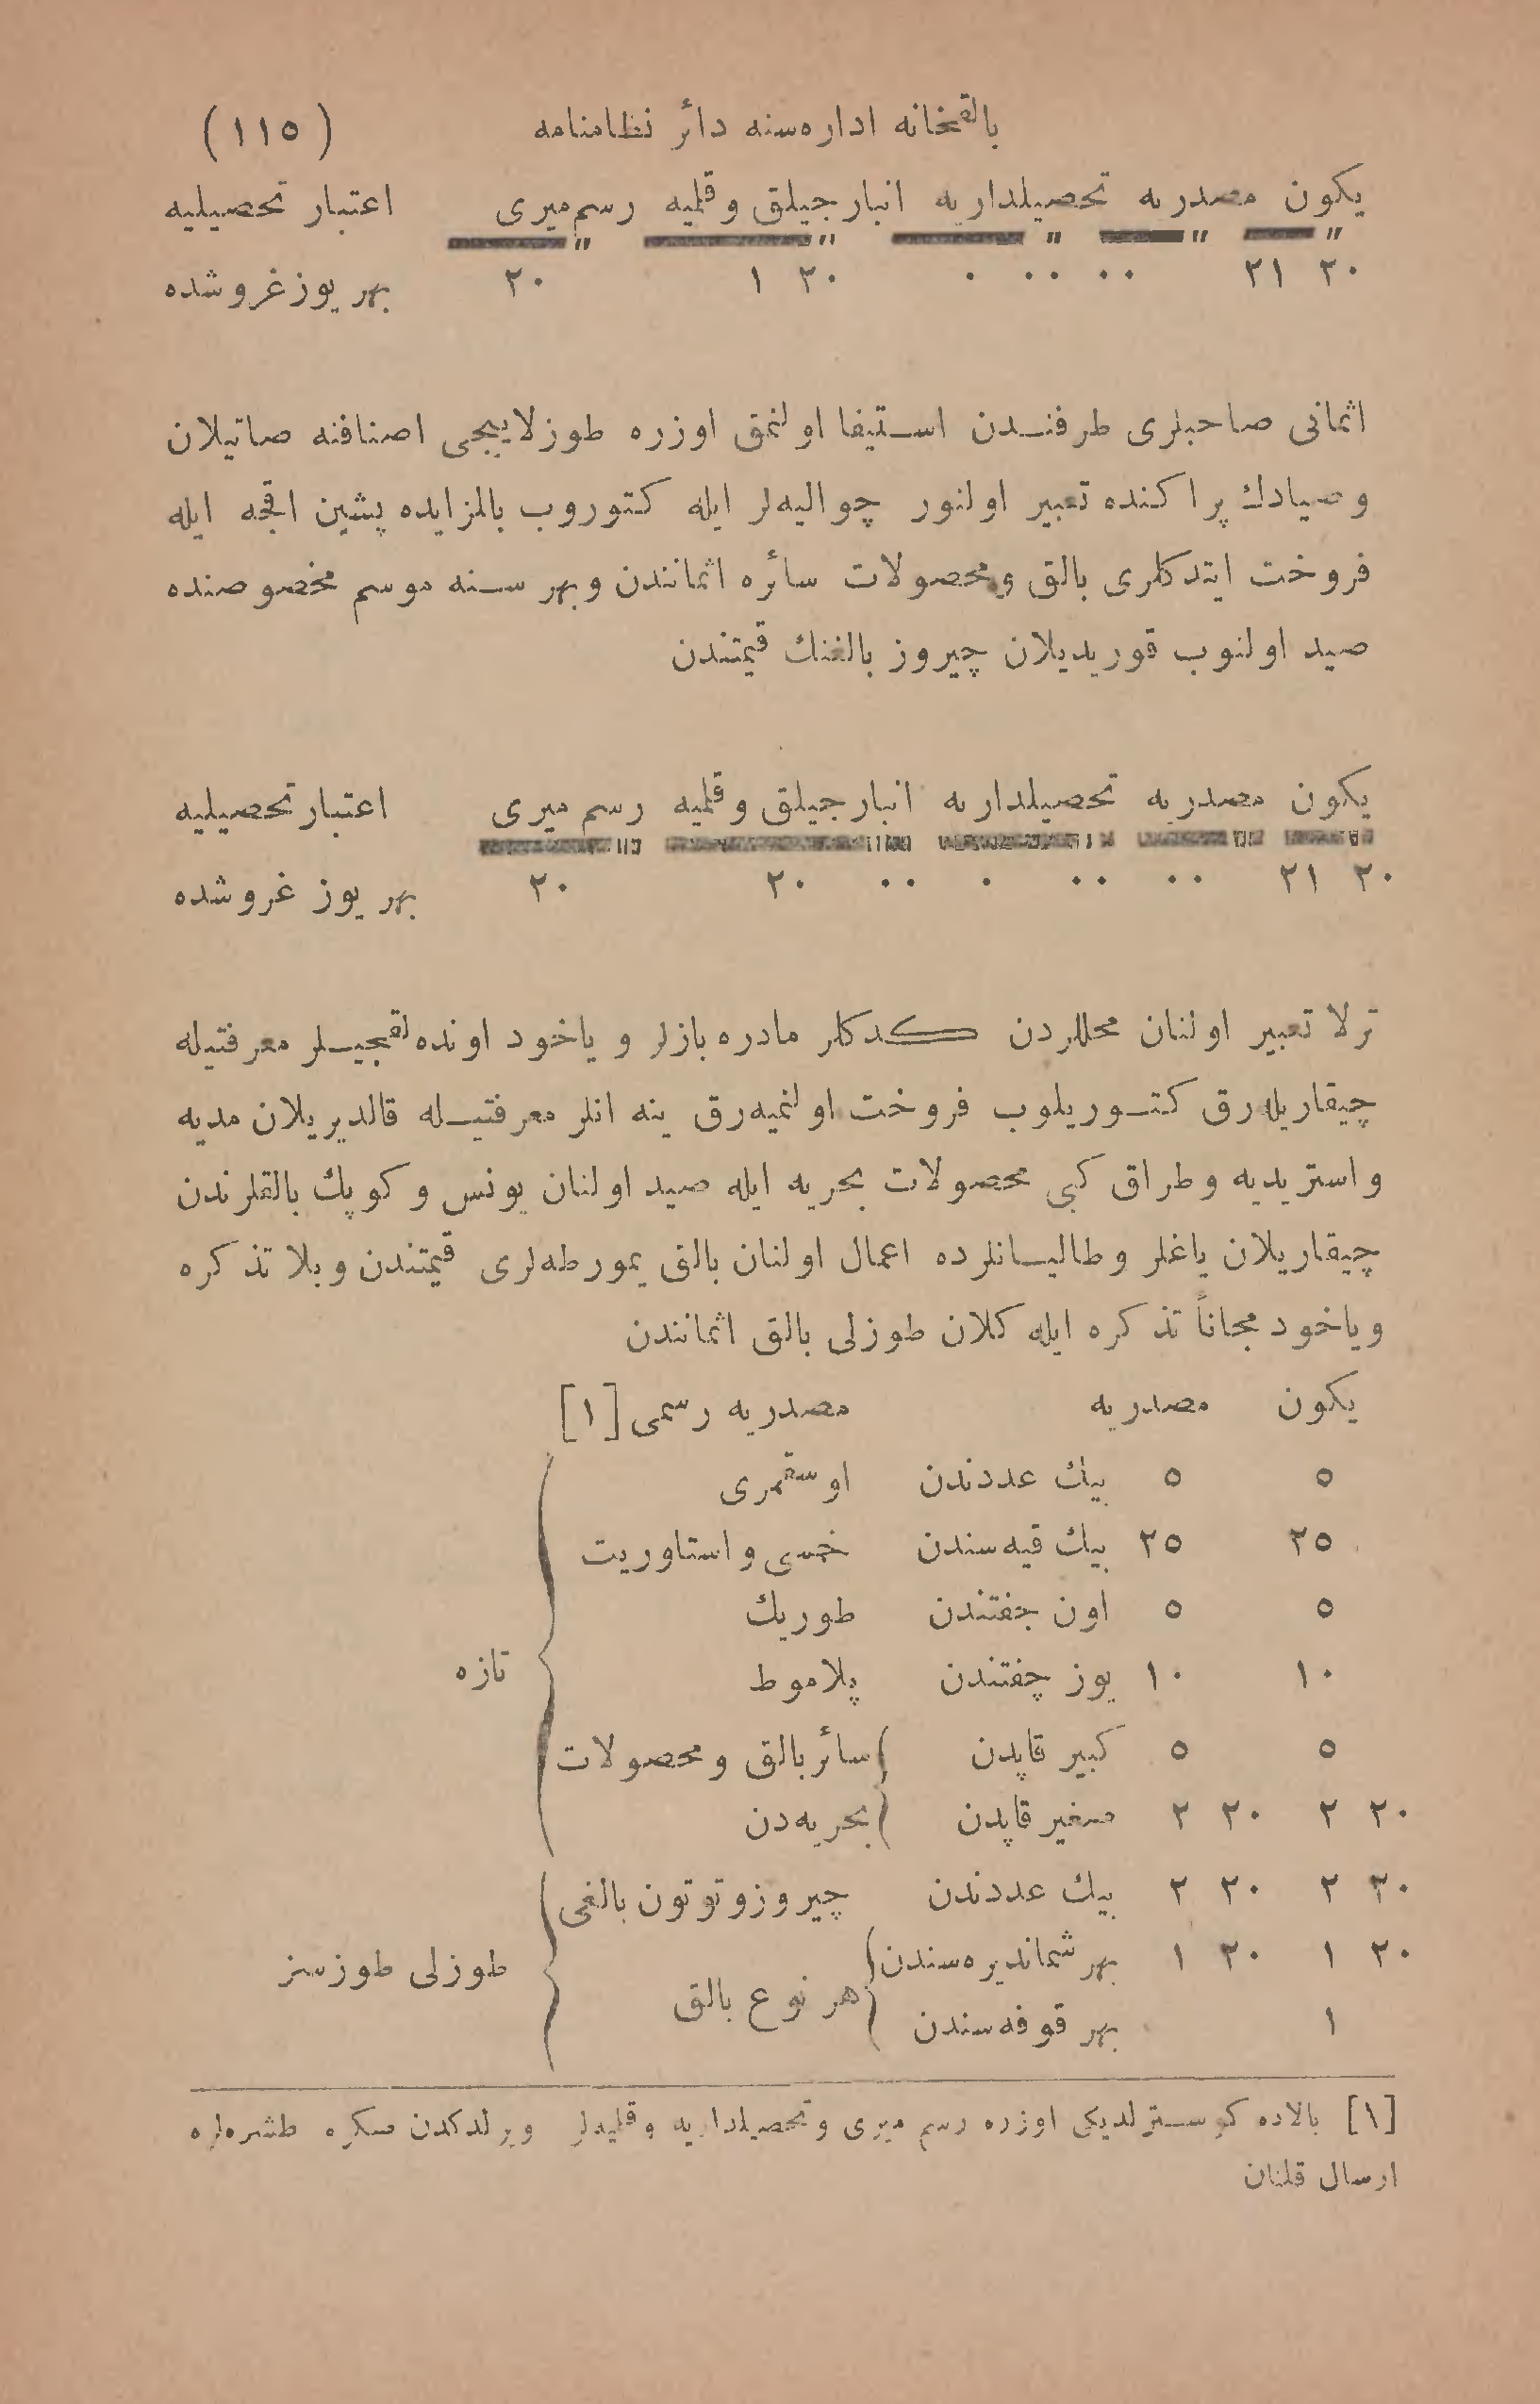 بالقخانه اداره‌سنه دائر نظامنامه (١١٥)
یكون مصدریه تحصیلداریه انبارجیلق وقلمیه رسم میری اعتبار تحصیلیه
٢٠ ٢١ ٠٠ ٠٠ ٠ ٢٠ ١ ٢٠ بهر یوز غروشده
اثمانی صاحبلری طرفندن استیفا اولنمق اوزره طوزلاییجی اصنافنه صاتیلان
وصیادك پراكنده تعبیر اولنور چوالیه‌لر ایله كتوروب بالمزایده پشین اقچه ایله
فروخت ایتدكلری بالق ومحصولات سائره اثمانندن وبهر سنه موسم مخصوصنده
صید اولنوب قوریدیلان چیروز بالغنك قیمتندن
یكون مصدریه تحصیلداریه انبارجیلق وقلمیه رسم میری اعتبار تحصیلیه
٢٠ ٢١ ٠٠ ٠٠ ٠ ٠٠ ٢٠ ٢٠ بهر یوز غروشده
ترلا تعبیر اولنان محللردن كدكلر مادره بازلر و یاخود اونده‌لقجیلر معرفتیله
چیقاریله‌رق كتوریلوب فروخت اولنمیه‌رق ینه انلر معرفتیله قالدیریلان مدیه
واستریدیه وطراق كبی محصولات بحریه ایله صید اولنان یونس وكوپك بالقلرندن
چیقاریلان یاغلر وطالیانلرده اعمال اولنان بالق یمورطه‌لری قیمتندن وبلا تذكره
ویاخود مجاناً تذكره ایله كلان طوزلی بالق اثمانندن
یكون مصدریه مصدریه رسمی [١]
٥ ٥ بیك عددندن اوسقمری
٢٥ ٢٥ بیك قیه‌سندن خمسی واستاوریت
٥ ٥ اون جفتندن طوریك
١٠ ١٠ یوز چفتندن پلاموط
تازه
٥ ٥ كبیر قاپدن سائر بالق ومحصولات
٢٠ ٢ ٢٠ ٢ صغیر قاپدن بحریه‌دن
٢٠ ٢ ٢٠ ٢ بیك عددندن چیروز وتوتون بالغی
٢٠ ١ ٢٠ ١ بهر شماندیره‌سندن
هر نوع بالق طوزلی طوزسز
١ بهر قوفه‌سندن
[١] بالاده كوسترلدیكی اوزره رسم میری وتحصیلداریه وقلمیه‌لر ویرلدكدن صكره طشره‌لره
ارسال قلنان